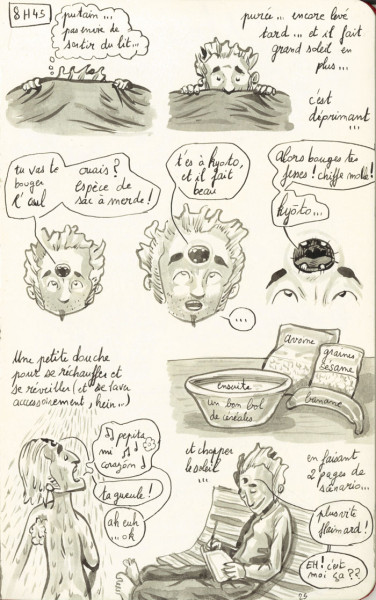 8H45
putain...
pas envie de
sortir du lit...
purée... encore levé
tard... et il fait
grand soleil en
plus...
c'est
déprimant
...
tu vas te
bouger
l'cul
ouais ?
espèce de
sac à merde !
t'es à kyoto,
et il fait
beau
...
Alors bouges tes
fesses ! chiffe molle !
kyōto...
Une petite douche
pour se réchauffer et
se réveiller (et se laver
accessoirement, hein...)
pepita
mi
corazom
ta gueule !
ah euh
... ok
arome
graines
sésame
banane
ensuite
un bon bol
de céréales
et choper
le soleil
...
en faisant
2 pages de
scénario...
plus vite
flemmard !
EH ! c'est
moi ça ??
25